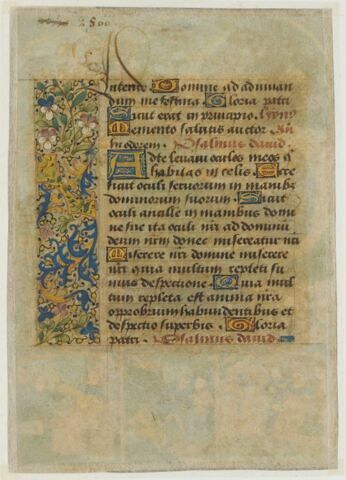 2.800
Intende. Domine ad adiuvan
dum me festina Gloria patri
Sicut erat in principio. hymn
Memento salutis auctor. An
In odorem. Psalmus david.
Ad te levavi oculos meos q
habitas in celis. Ecce
sicut oculi servorum in manibz
dominorum suorum. Sicut
oculi ancille in manibus domi
ne sue ita oculi nri ad dominū
deum nrm donec misereatur nri
Miserere nri domine miserere
nri quia multum repleti su
mus despectione Quia mul
tum repleta est anima nra
opprobrium habundentibus et
despectio superbis. Gloria
patri. Psalmus david.